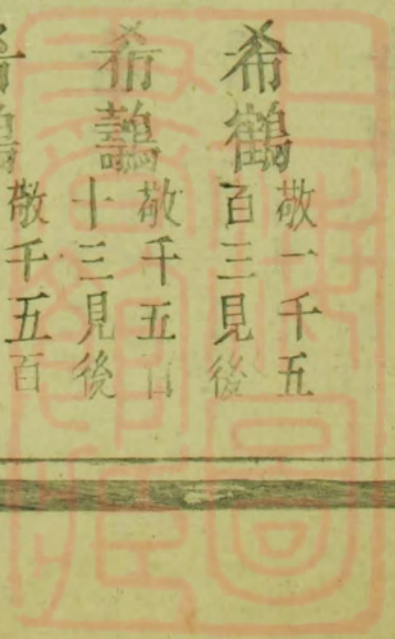 希鶴
敬一千五
百三見後
希
敬千五百
十三見後
敬千五百